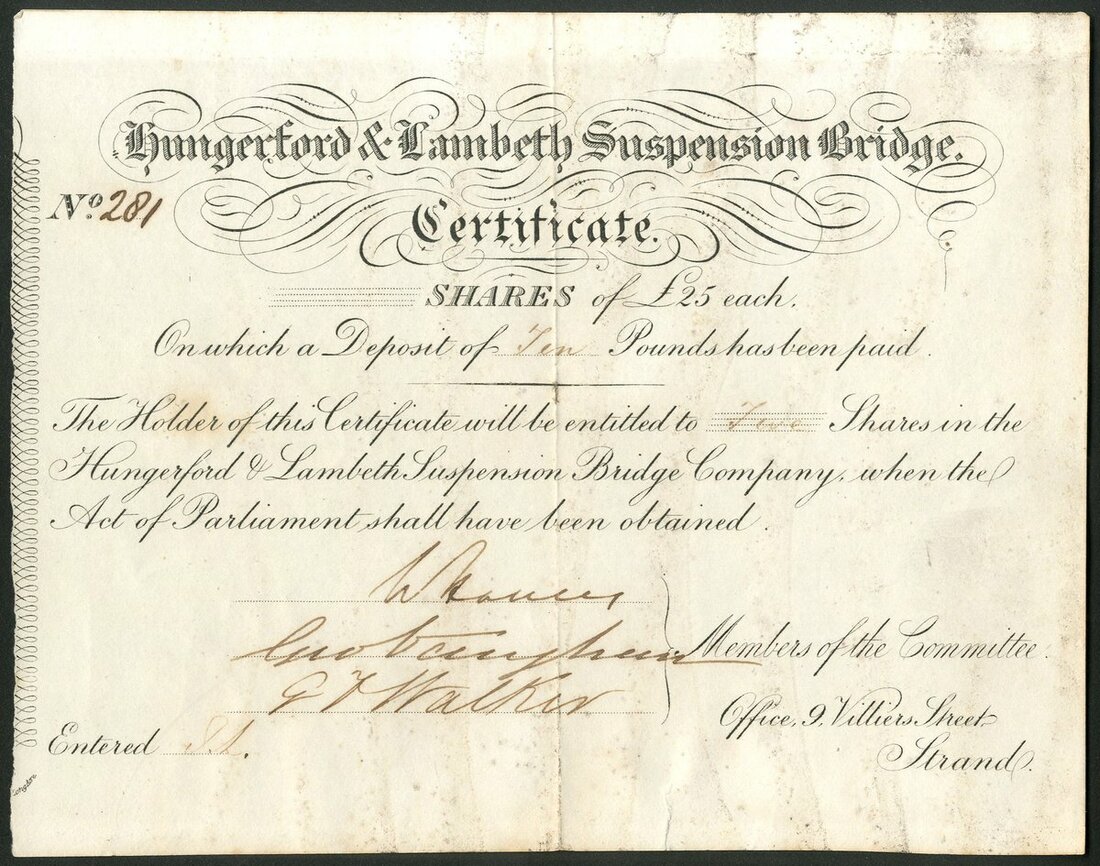 Hungerford & Lambeth Suspension Bridge.
No. 281
Certificate.
SHARES of £25 each.
On which a Deposit of Ten Pounds has been paid.
The Holder of this Certificate will be entitled to Five Shares in the
Hungerford & Lambeth Suspension Bridge Company, when the
Act of Parliament shall have been obtained.
Geo Vaughan
G F Walker
Members of the Committee.
Office, 9, Villiers Street,
Strand.
Entered